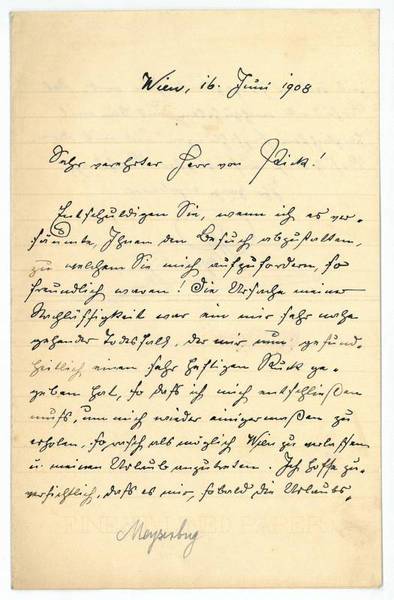 Wien, 16. Juni 1908
Sehr verehrter Herr von Rick!
Entschuldigen Sie, wenn ich es ver-
säumte, Ihnen den Besuch abzustatten,
zu welchem Sie mich aufzufordern, so
freundlich waren! Die Ursache meiner
Nachlässigkeit war ein mir sehr nahe
gehender Todesfall, der mir nun gesund-
heitlich einen sehr heftigen Ruck ge-
geben hat, so daß ich mich entschließen
muß, um mich wieder einigermaßen zu
erholen, so rasch als möglich Wien zu verlassen
u. meinen Urlaub anzutreten. Ich hoffe zu-
versichtlich, daß es mir, sobald die Urlaubs-